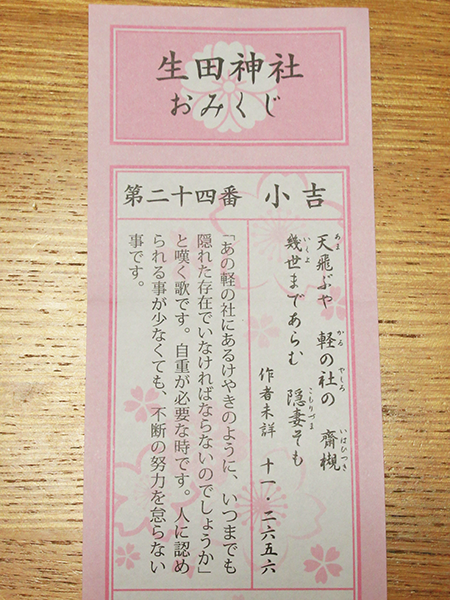 生田神社
おみくじ
第二十四番 小吉
天飛ぶや 軽の社の 齋槻
あま かる やしろ いはひつき
幾世まであらむ 隠妻そも
いくよ こもりづま
作者未詳 十一・二六五六
「あの軽の社にあるけやきのように、いつまでも
隠れた存在でいなければならないのでしょうか」
と嘆く歌です。自重が必要な時です。人に認め
られる事が少なくても、不断の努力を怠らない
事です。